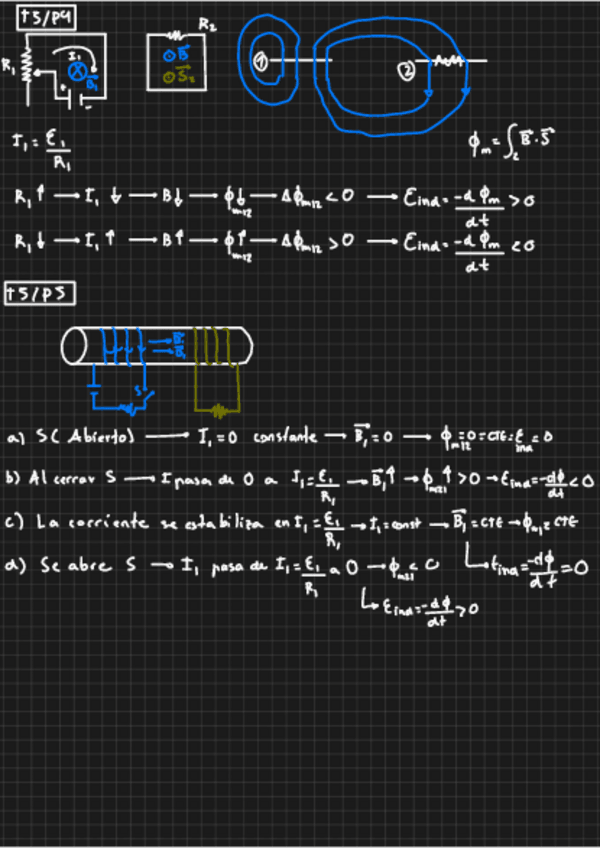 t5/p4
R₁ I₁ B⃗₁ + -
R₂ B⃗ S⃗₂
1 2
I₁ = ε₁/R₁
ϕm = ∫₂ B⃗ · S⃗
R₁ ↑ → I₁ ↓ → B↓ → ϕm12 ↓ → Δϕm12 < 0 → εind = -dϕm/dt > 0
R₁ ↓ → I₁ ↑ → B↑ → ϕm12 ↑ → Δϕm12 > 0 → εind = -dϕm/dt < 0
t5/p5
B⃗₁
S
a) S( Abierto) → I₁ = 0 constante → B⃗₁ = 0 → ϕm12 = 0 = CTE = εind = 0
b) Al cerrar S → I pasa de 0 a I₁ = ε₁/R₁ → B⃗₁↑ → ϕm21↑ > 0 → εind = -dϕ/dt < 0
c) La corriente se estabiliza en I₁ = ε₁/R₁ → I₁ = const → B⃗₁ = CTE → ϕm12 CTE
↳ εind = -dϕ/dt = 0
d) Se abre S → I₁ pasa de I₁ = ε₁/R₁ a 0 → ϕm21 < 0
↳ εind = -dϕ/dt > 0